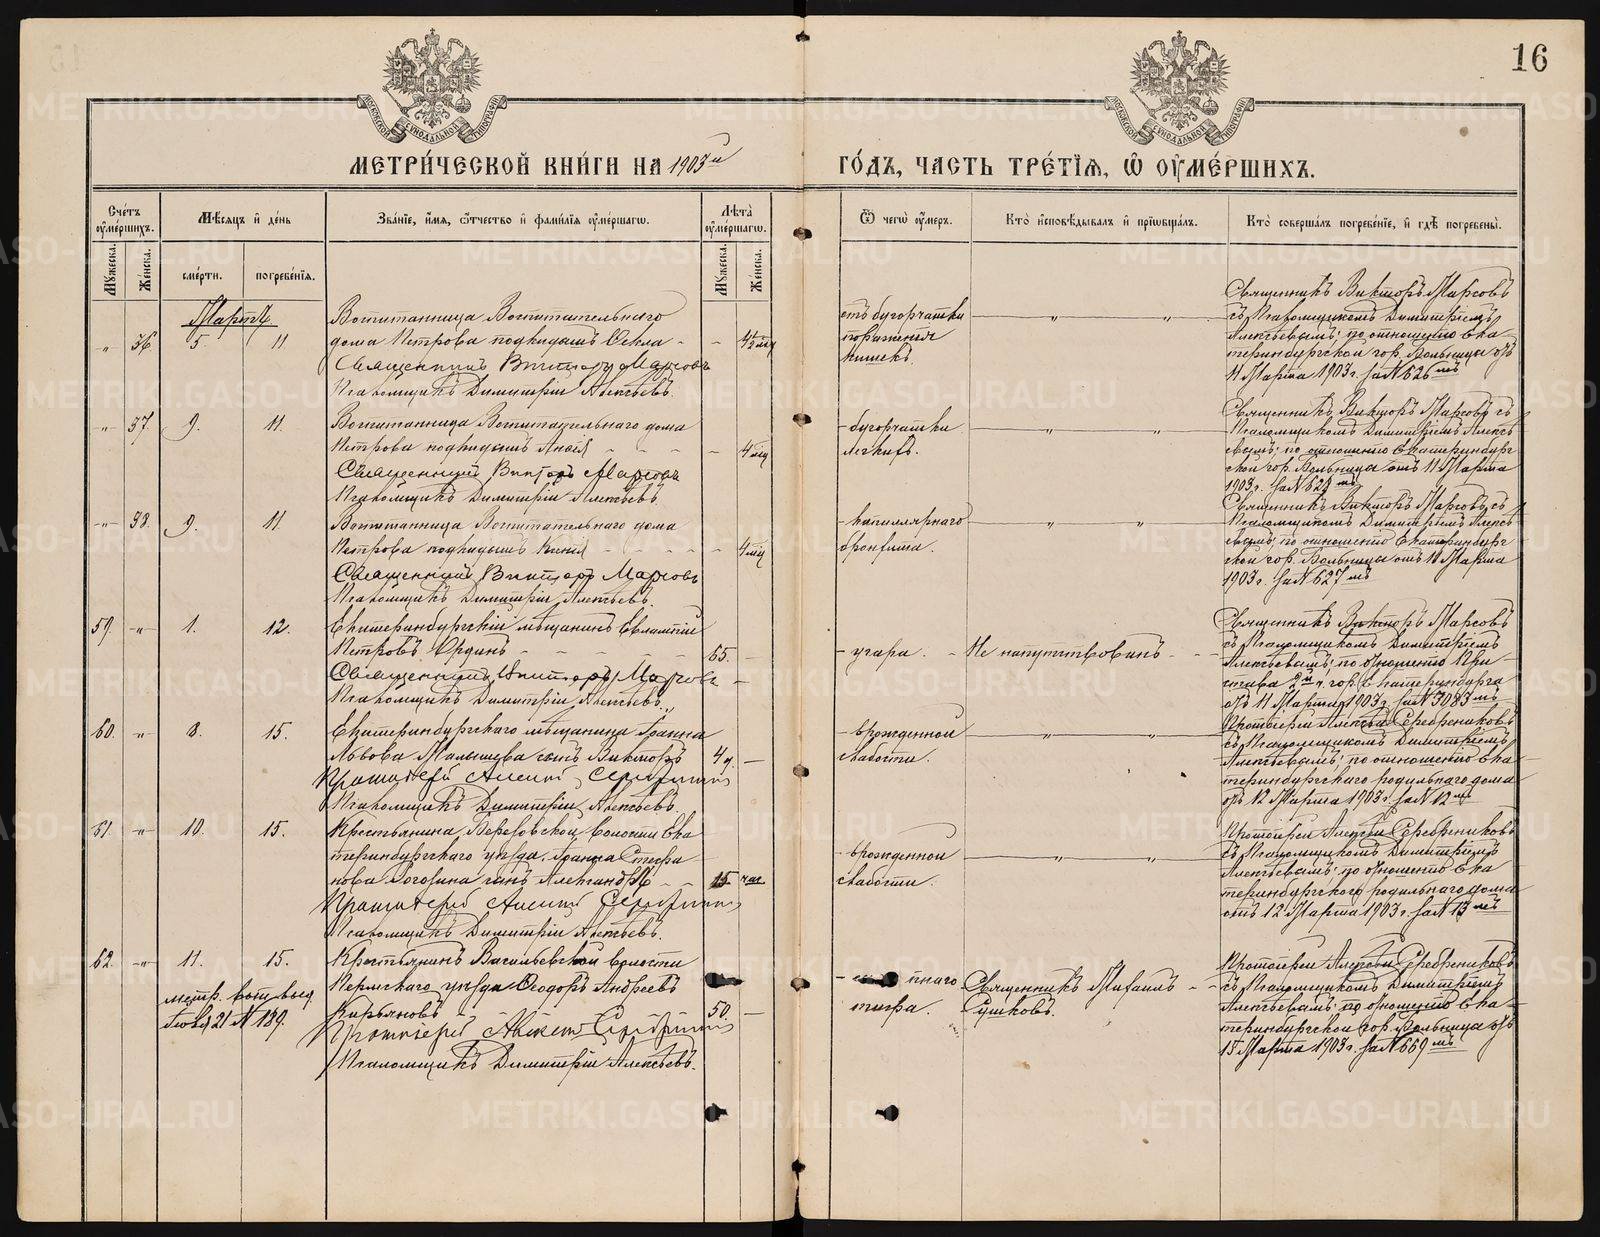 16
МОСКОВСКОЙ СѴНОДАЛЬНОЙ ТИПОГРАФІИ
МОСКОВСКОЙ СѴНОДАЛЬНОЙ ТИПОГРАФІИ
МЕТРИ́ЧЕСКОЙ КНИ́ГИ НА 1903й
ГО́ДЪ, ЧАСТЬ ТРЕ́ТІѦ, Ѡ҆ ОУ҆МЕ́РШИХЪ.
Сче́тъ оу҆ме́ршихъ.
Мѣсяцъ и҆ де́нь
Зва́ніе, и҆́мя, ѻ҆́тчество и҆ фами́лія оу҆ме́ршагѡ.
Лѣта̀ оу҆ме́ршагѡ.
Мꙋжеска.
Же́нска.
сме́рти.
погребе́нія.
Мꙋжеска.
Же́нска.
Ѿ чегѡ̀ оу҆́меръ.
Кто̀ и҆сповѣ́дывалъ и҆ прїѡбща́лъ.
Кто̀ соверша́лъ погребе́ніе, и҆ гдѣ̀ погребены̀.
Мартъ
" 36 5 11
Воспитанница Воспитательнаго
дома Петрова подкидышъ Ѳекла -
Священникъ Викторъ Марсовъ
Псаломщикъ Димитрій Алексѣевъ.
- 4½ мц
отъ бугорчатки
пораженія
кишекъ.
Священникъ Викторъ Марсовъ
съ Псаломщикомъ Димитріемъ
Алексѣевымъ; по отношенію Ека-
теринбургской гор. больницы отъ
11 Марта 1903 г. за N 626 мъ
" 37 9. 11.
Воспитанница Воспитательнаго дома
Петрова подкидышъ
Священникъ Викторъ Марсовъ
Псаломщикъ Димитрій Алексѣевъ.
- 4 мц
- бугорчатки
легкихъ.
Священникъ Викторъ Марсовъ съ
Псаломщикомъ Димитріемъ Алексѣ-
евымъ; по отношенію Екатеринбург
ской гор. больницы отъ 11 Марта
1903 г. за N
- " - 38. 9. 11.
Воспитанница Воспитательнаго дома
Петрова подкидышъ
Священникъ Викторъ Марсовъ
Псаломщикъ Димитрій Алексѣевъ.
4 мц
- капиллярнаго
бронхита.
Священникъ Викторъ Марсовъ съ
Псаломщикомъ Димитріемъ Алексѣ-
евымъ; по отношенію Екатеринбург
ской гор. больницы отъ 11 Марта
1903 г. за N 627 мъ
59. - " - 1. 12.
Екатеринбургскій мѣщанинъ Евлампій
Петровъ Ординъ
Священникъ Викторъ Марсовъ
Псаломщикъ Димитрій Алексѣевъ.
65. -
- угара. - Не напутствованъ
Священникъ Викторъ Марсовъ
съ Псаломщикомъ Димитріемъ
Алексѣевымъ; по отношенію При-
става 2й ч. гор. Екатеринбурга
отъ 11 Марта 1903 г. за N 3083 мъ
60. - " - 8. 15.
Екатеринбургскаго мѣщанина Іоанна
Львова Малышева сынъ Викторъ
Протоіерей Алексій Серебренниковъ
Псаломщикъ Димитрій Алексѣевъ.
4 д. -
- врожденной
слабости.
Протоіерей Алексѣй Серебрениковъ
съ Псаломщикомъ Димитріемъ
Алексѣевымъ; по отношенію Ека-
теринбургскаго родильнаго дома
отъ 12 Марта 1903 г. за N 12 мъ
61. - " - 10. 15.
Крестьянина Березовской волости Ека
теринбургскаго уѣзда Іоанна Стефа
нова сынъ Александръ
Протоіерей Алексій Серебренниковъ
Псаломщикъ Димитрій Алексѣевъ.
15 час
- врожденной
слабости.
Протоіерей Алексѣй Серебрениковъ
съ Псаломщикомъ Димитріемъ
Алексѣевымъ; по отношенію Ека
теринбургскаго родильнаго дома
отъ 12 Марта 1903 г. за N 13 мъ
62. - " - 11. 15.
Крестьянинъ Васильевской волости
Пермскаго уѣзда Ѳеодоръ Андреевъ
Кирьяновъ
Протоіерей Алексій Серебренниковъ
Псаломщикъ Димитрій Алексѣевъ.
метр. вып. выд
21 N 139.
50. -
тифа.
Священникъ Михаилъ
Сушковъ.
Протоіерей Алексѣй Серебрениковъ
съ Псаломщикомъ Димитріемъ
Алексѣевымъ; по отношенію Ека
теринбургской гор. больницы отъ
15 Марта 1903 г. за N 669 мъ
METRIKI.GASO-URAL.RU